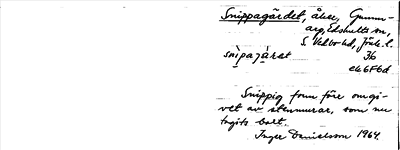 Snippagärdet, åker, Gumm-
arp, Edshults sn,
S. Vedbo hd, Jönk. l.
snìpajǻrat 36
ek6F6d
Snippig form före omgi-
vet av stenmurar, som nu
tagits bort.
Inger Danielsson 1964.